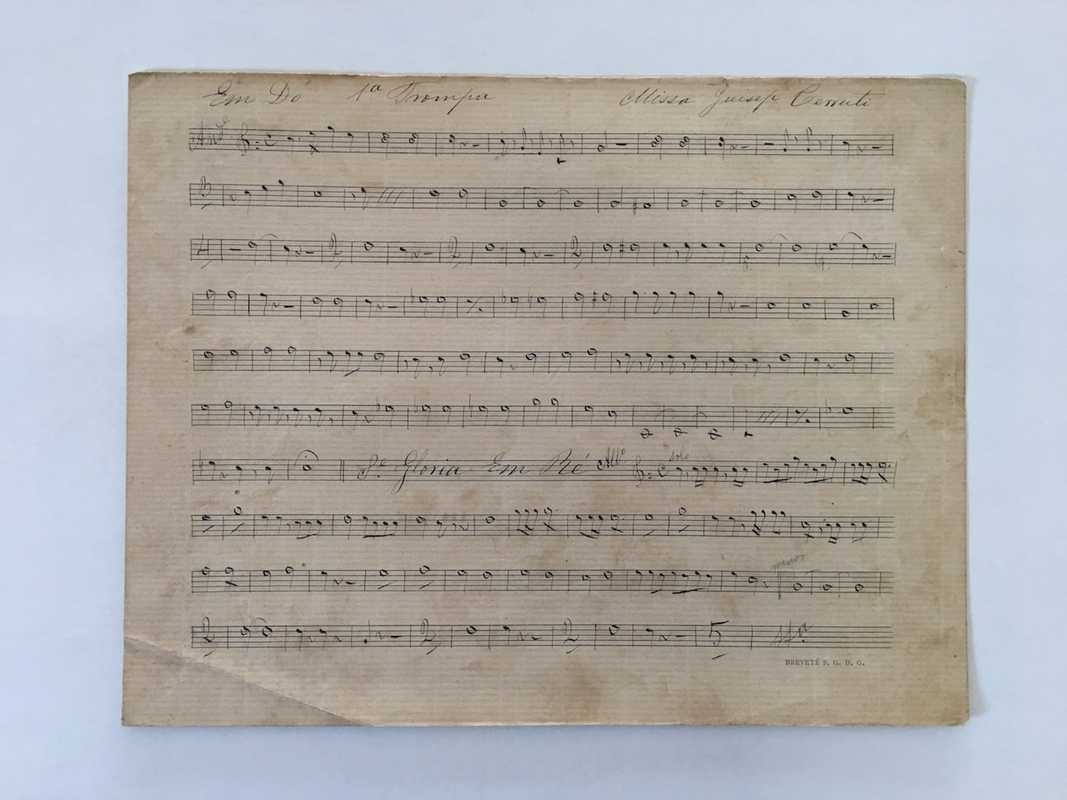 Em Dó 1ª Trompa Missa Guisep Cerruti
And
13
4 2 2 2
Sº Gloria Em Ré Allº solo
2 2 2 5
BREVETÉ S. G. D. G.